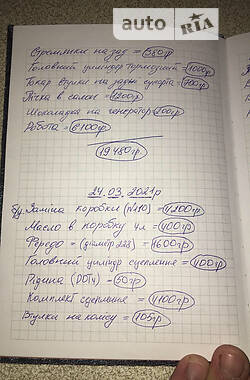 auto RIA
Стремянки на зад = 380гр
Головний циліндр тормозний = 1000гр
Токар втулки на задні супорта = 700гр
Пічка в салон = 1200гр
Шоколадка на генератор = 200гр
Робота = 6100гр
19480гр
24.03.2021р
бу. Заміна коробки = 4200гр
Масло в коробку 4л = 400гр
Фередо = (діаметр 228) = 1600гр
Головний циліндр сцеплення = 400гр
Рідина (DOT4) = 50гр
Комплект сцеплення = 4400гр
Втулки на кулісу = 105гр